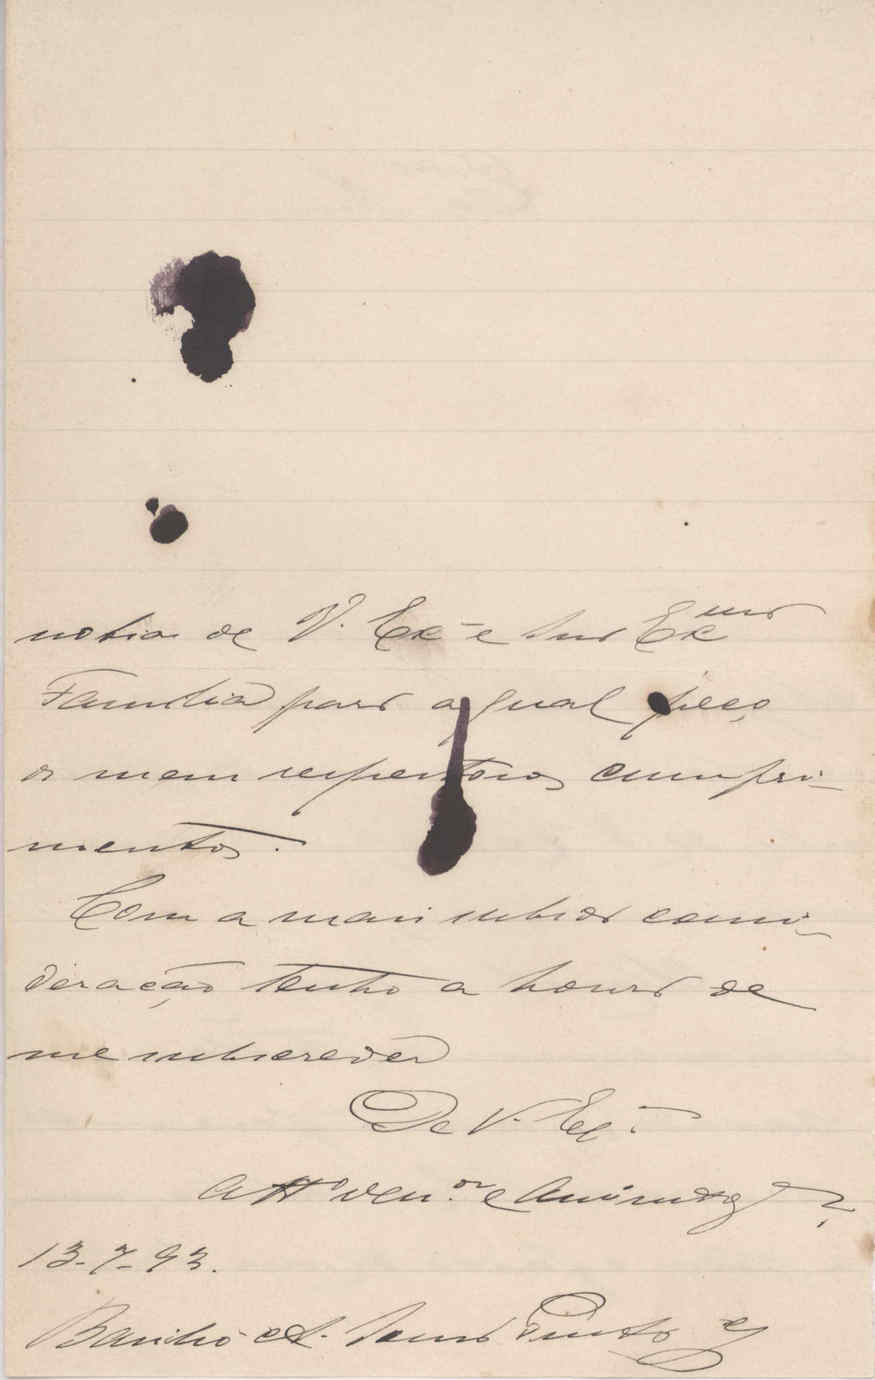 noticia de V. Exª e sua Exma
Familia para a qual peço
os meus respeitosos cumpri-
mentos.
Com a mais subida consi-
deração tenho a honra de
me subscrever
De V. Exª.
Attº Ven.or e
13-7-93.
Basilio A. Sousa Pinto